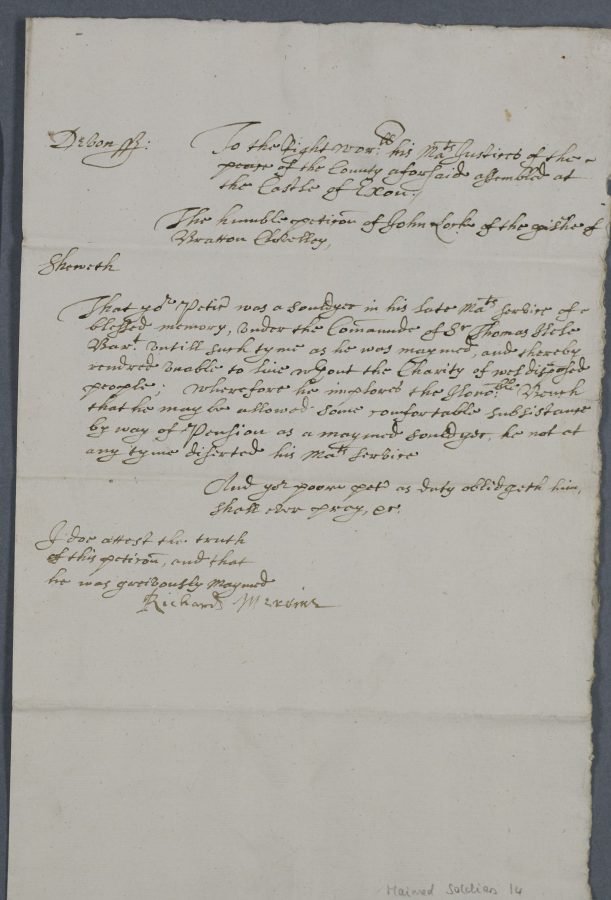 Devon ss:
To the Right wor:ll his Ma:ts Justices of the
peace of the County aforesaid assembled at
the Castle of Exon:
The humble peticon of John Locke of the pishe of
Bratton Clovelley,
Sheweth
That yor Peticr was a Souldyer in his late Ma:ts Service of
blessed memory, under the Comaunde of Sr Thomas Hele
Bart. Untill such tyme as he was maymed, and thereby
rendred unable to live wthout the Charity of well disposed
people; Wherefore he implores the Hono:ble Bench
that he may be allowed some comfortable Subsistance
by way of Pension as a maymed Souldyer, he not at
any tyme diserted his Ma:ts Service
And yor poore petr as duty obligeth him,
shall ever pray, &c.
I doe attest the truth
of this peticon, and that
he was greivously Maymed
Richard
Maimed Soldiers 14